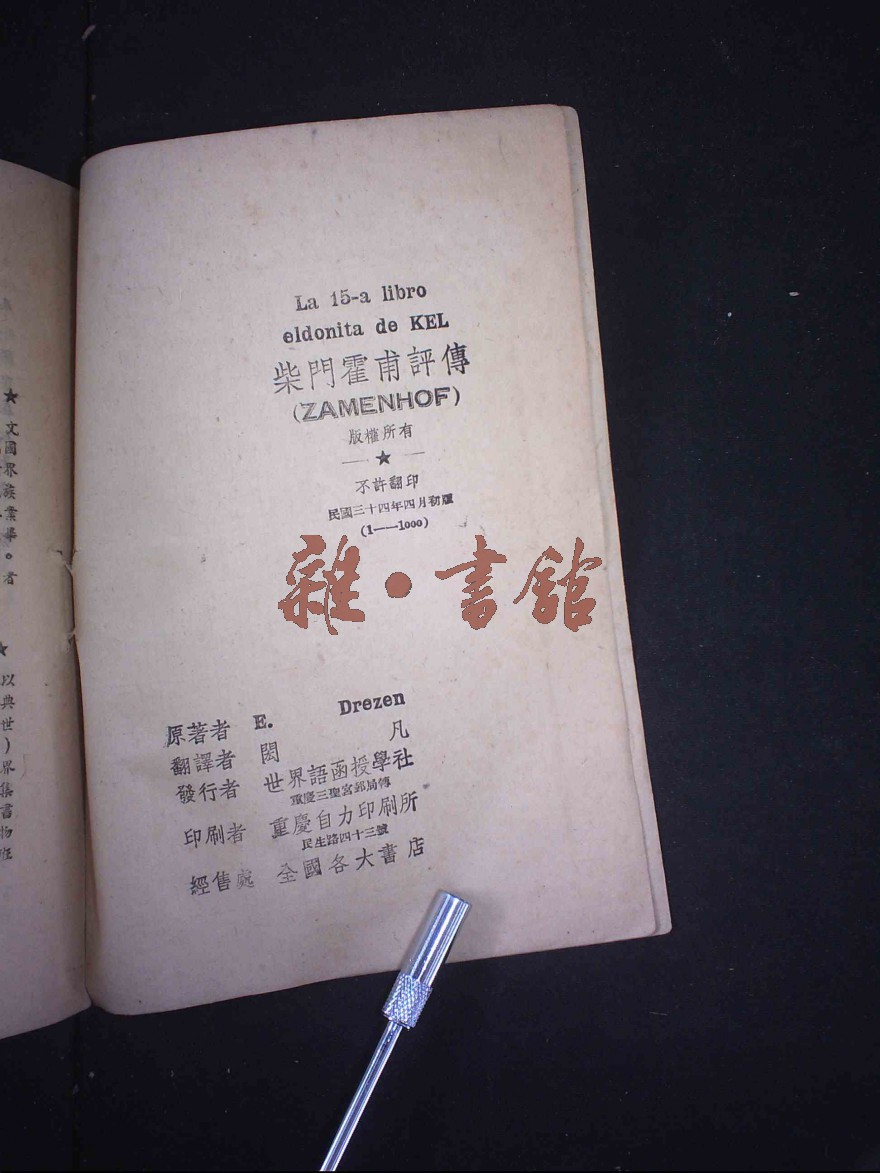 La 15-a libro
eldonita de KEL
柴門霍甫評傳
(ZAMENHOF)
版權所有
★
不許翻印
民國三十四年四月初版
(1——1000)
雜·書館
原著者 E. Drezen
翻譯者 閎 凡
發行者 世界語函授學社
重慶三聖宮郵局傳
印刷者 重慶自力印刷所
民生路四十三號
經售處 全國各大書店